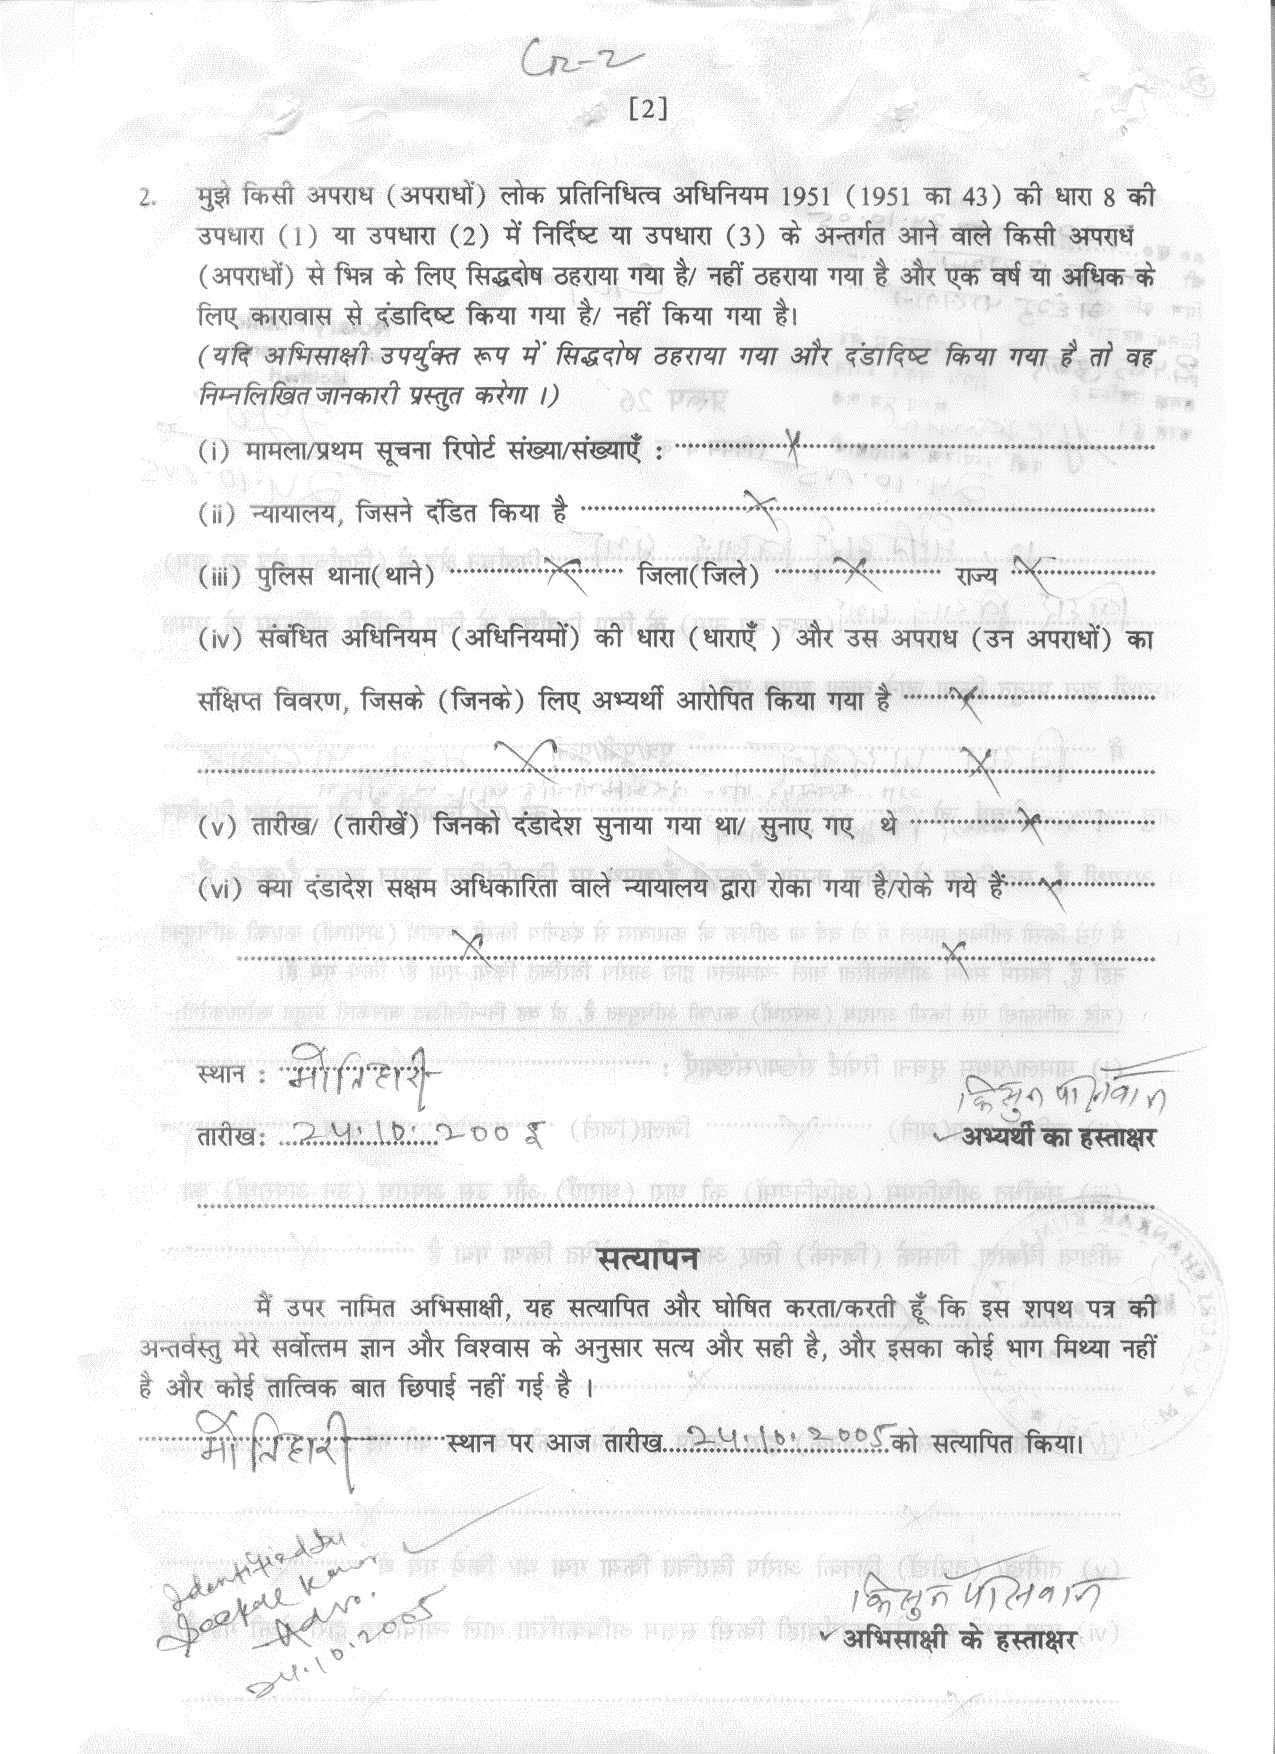 CR-2
[2]
2. मुझे किसी अपराध (अपराधों) लोक प्रतिनिधित्व अधिनियम 1951 (1951 का 43) की धारा 8 की
उपधारा (1) या उपधारा (2) में निर्दिष्ट या उपधारा (3) के अन्तर्गत आने वाले किसी अपराध
(अपराधों) से भिन्न के लिए सिद्धदोष ठहराया गया है/ नहीं ठहराया गया है और एक वर्ष या अधिक के
लिए कारावास से दंडादिष्ट किया गया है/ नहीं किया गया है।
(यदि अभिसाक्षी उपर्युक्त रूप में सिद्धदोष ठहराया गया और दंडादिष्ट किया गया है तो वह
निम्नलिखित जानकारी प्रस्तुत करेगा ।)
(i) मामला/प्रथम सूचना रिपोर्ट संख्या/संख्याएँ : X
(ii) न्यायालय, जिसने दंडित किया है X
(iii) पुलिस थाना(थाने) X जिला(जिले) X राज्य X
(iv) संबंधित अधिनियम (अधिनियमों) की धारा (धाराएँ ) और उस अपराध (उन अपराधों) का
संक्षिप्त विवरण, जिसके (जिनके) लिए अभ्यर्थी आरोपित किया गया है X
X X
(v) तारीख/ (तारीखें) जिनको दंडादेश सुनाया गया था/ सुनाए गए थे X
(vi) क्या दंडादेश सक्षम अधिकारिता वाले न्यायालय द्वारा रोका गया है/रोके गये हैं X
X X
स्थान : मोतिहारी
किसुन पासवान
तारीख: 24.10.2005
अभ्यर्थी का हस्ताक्षर
सत्यापन
मैं उपर नामित अभिसाक्षी, यह सत्यापित और घोषित करता/करती हूँ कि इस शपथ पत्र की
अन्तर्वस्तु मेरे सर्वोत्तम ज्ञान और विश्वास के अनुसार सत्य और सही है, और इसका कोई भाग मिथ्या नहीं
है और कोई तात्विक बात छिपाई नहीं गई है ।
मोतिहारी स्थान पर आज तारीख 24.10.2005 को सत्यापित किया।
Identified by
Adv.
24.10.2005
किसुन पासवान
अभिसाक्षी के हस्ताक्षर